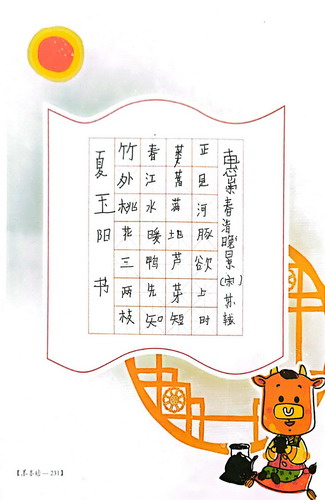 惠崇春清暖景(宋)苏轼
正是河豚欲上时
蒌蒿满地芦芽短
春江水暖鸭先知
竹外桃花三两枝
夏玉阳书
231